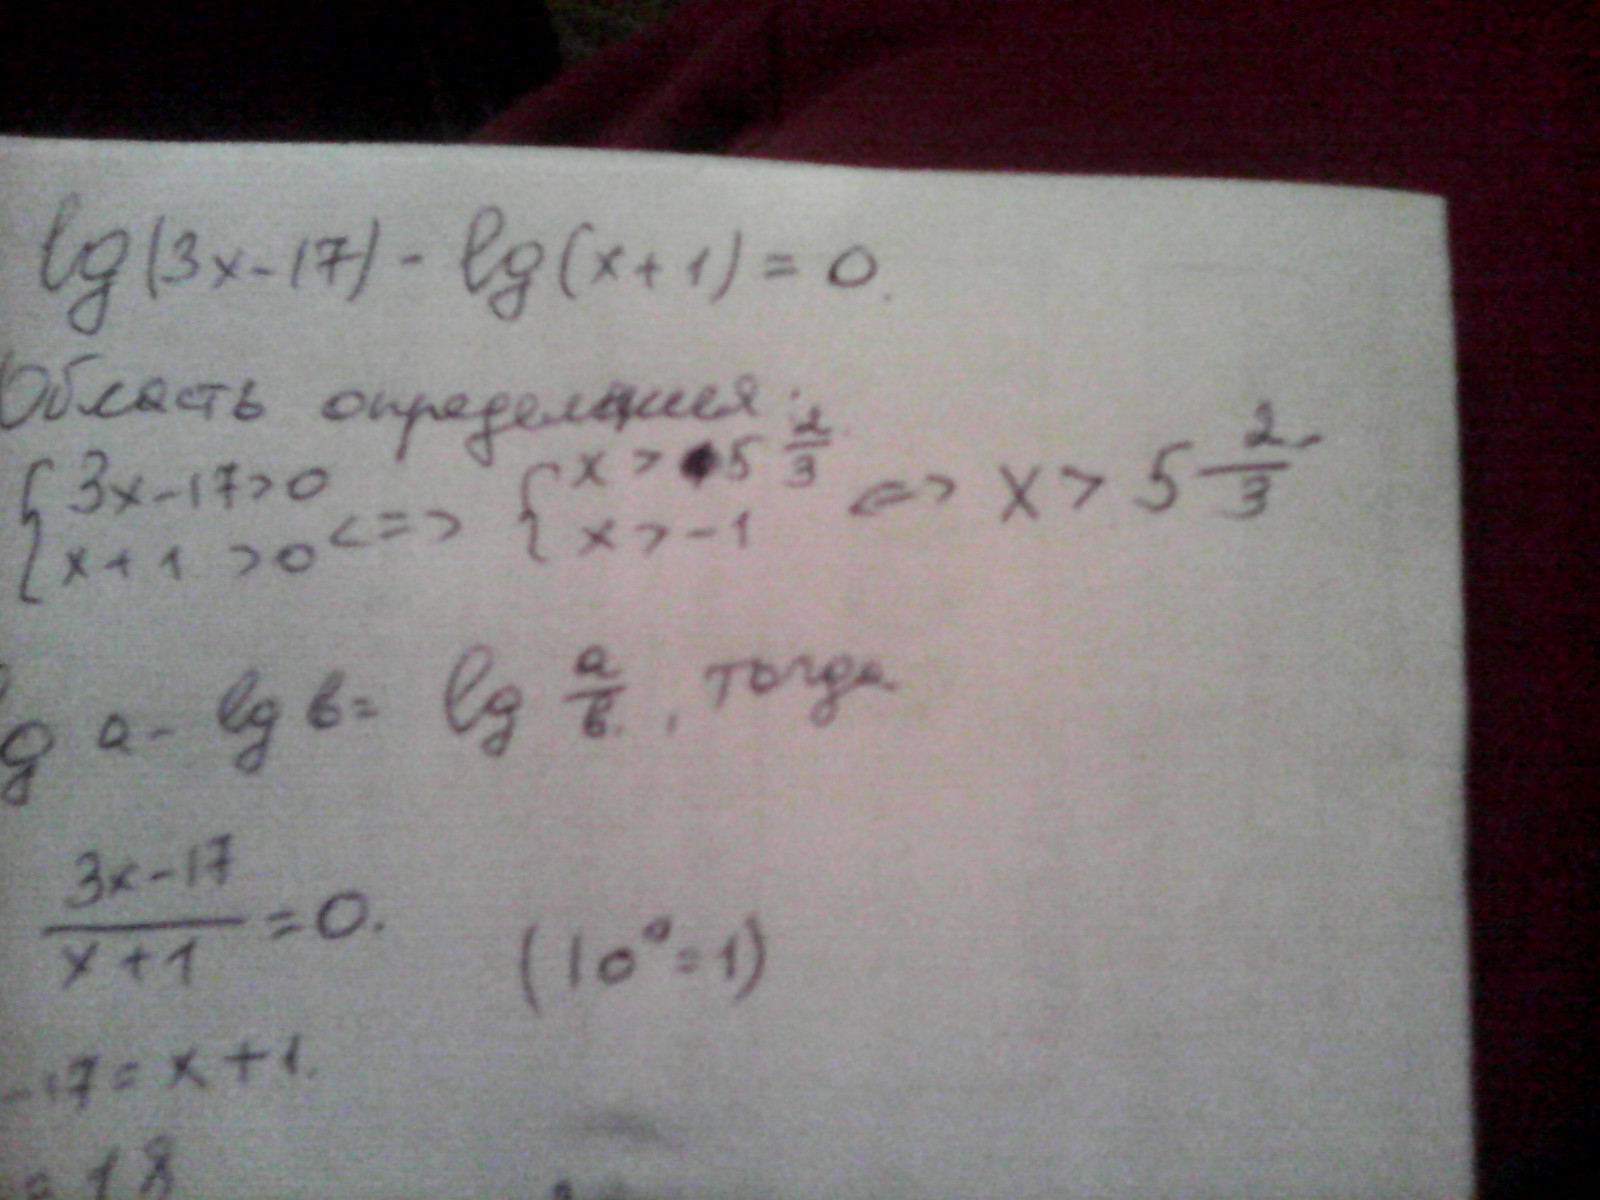 lg(3x-17) - lg(x+1) = 0.
Область определения:
{ 3x-17>0 <=> { x > 5 2/3 <=> x > 5 2/3
{ x+1 >0 { x > -1
lg a - lg b = lg a/b, тогда
(3x-17)/(x+1) = 0. (10⁰=1)
-17 = x+1.
= 18